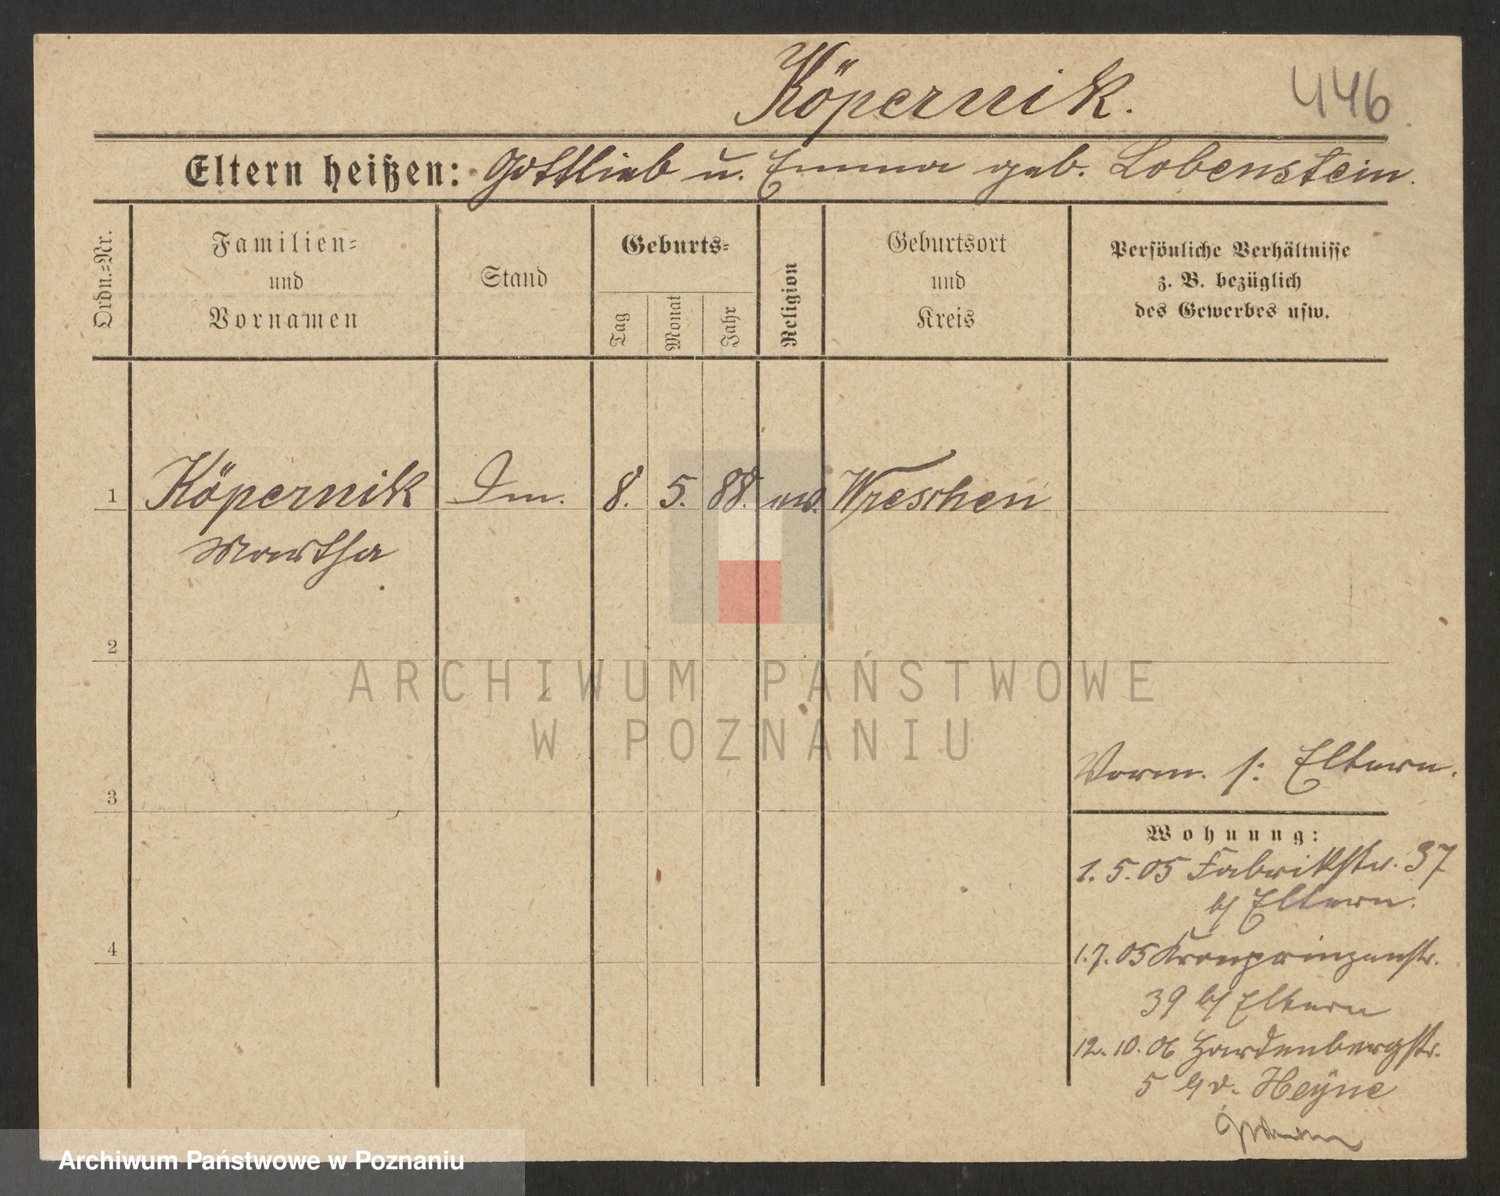 Köpernik.
446
Eltern heißen: Gottlieb u. Emma geb. Lobenstein.
Ordn.=Nr.
Familien=
und
Vornamen
Stand
Geburts=
Tag
Monat
Jahr
Religion
Geburtsort
und
Kreis
Persönliche Verhältnisse
z. B. bezüglich
des Gewerbes usw.
1 Köpernik 8. 5. 88. Wreschen
Martha
2
ARCHIWUM PAŃSTWOWE
W POZNANIU
Vorm. s: Eltern.
3
Wohnung:
1. 5. 05 Fabrikstr. 37
b/ Eltern.
4
1. 7. 05 Kronprinzenstr.
39 b/ Eltern
12. 10. 06 Hardenbergstr.
5 b/ v. Heyne
Archiwum Państwowe w Poznaniu